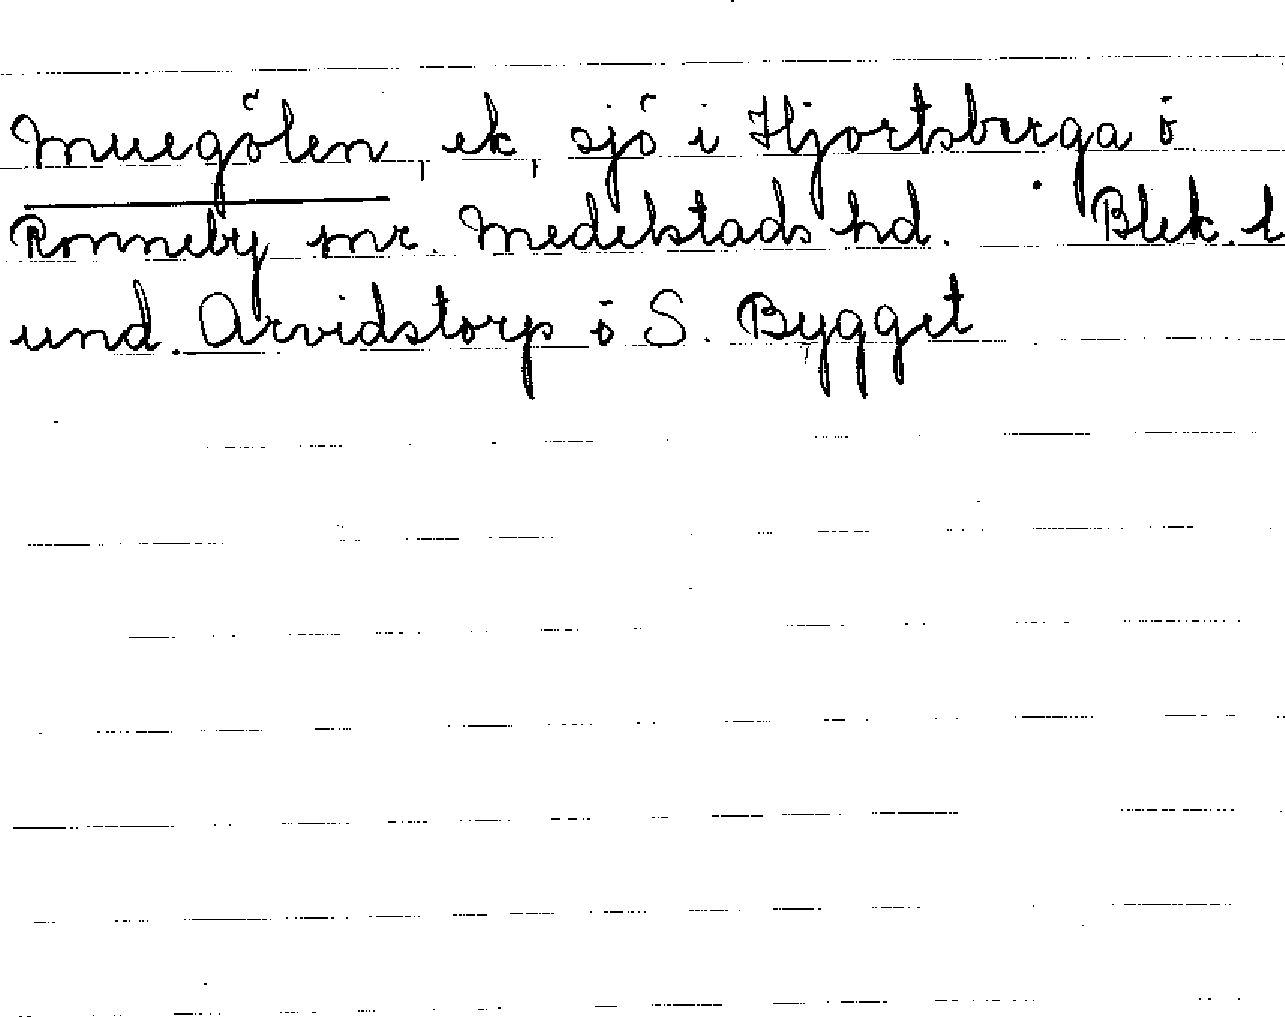 Muregölen, ek, sjö i Hjortsberga i
Ronneby mr. Medelstads hd. Blek. l
und. Arvidstorp i S. Bygget